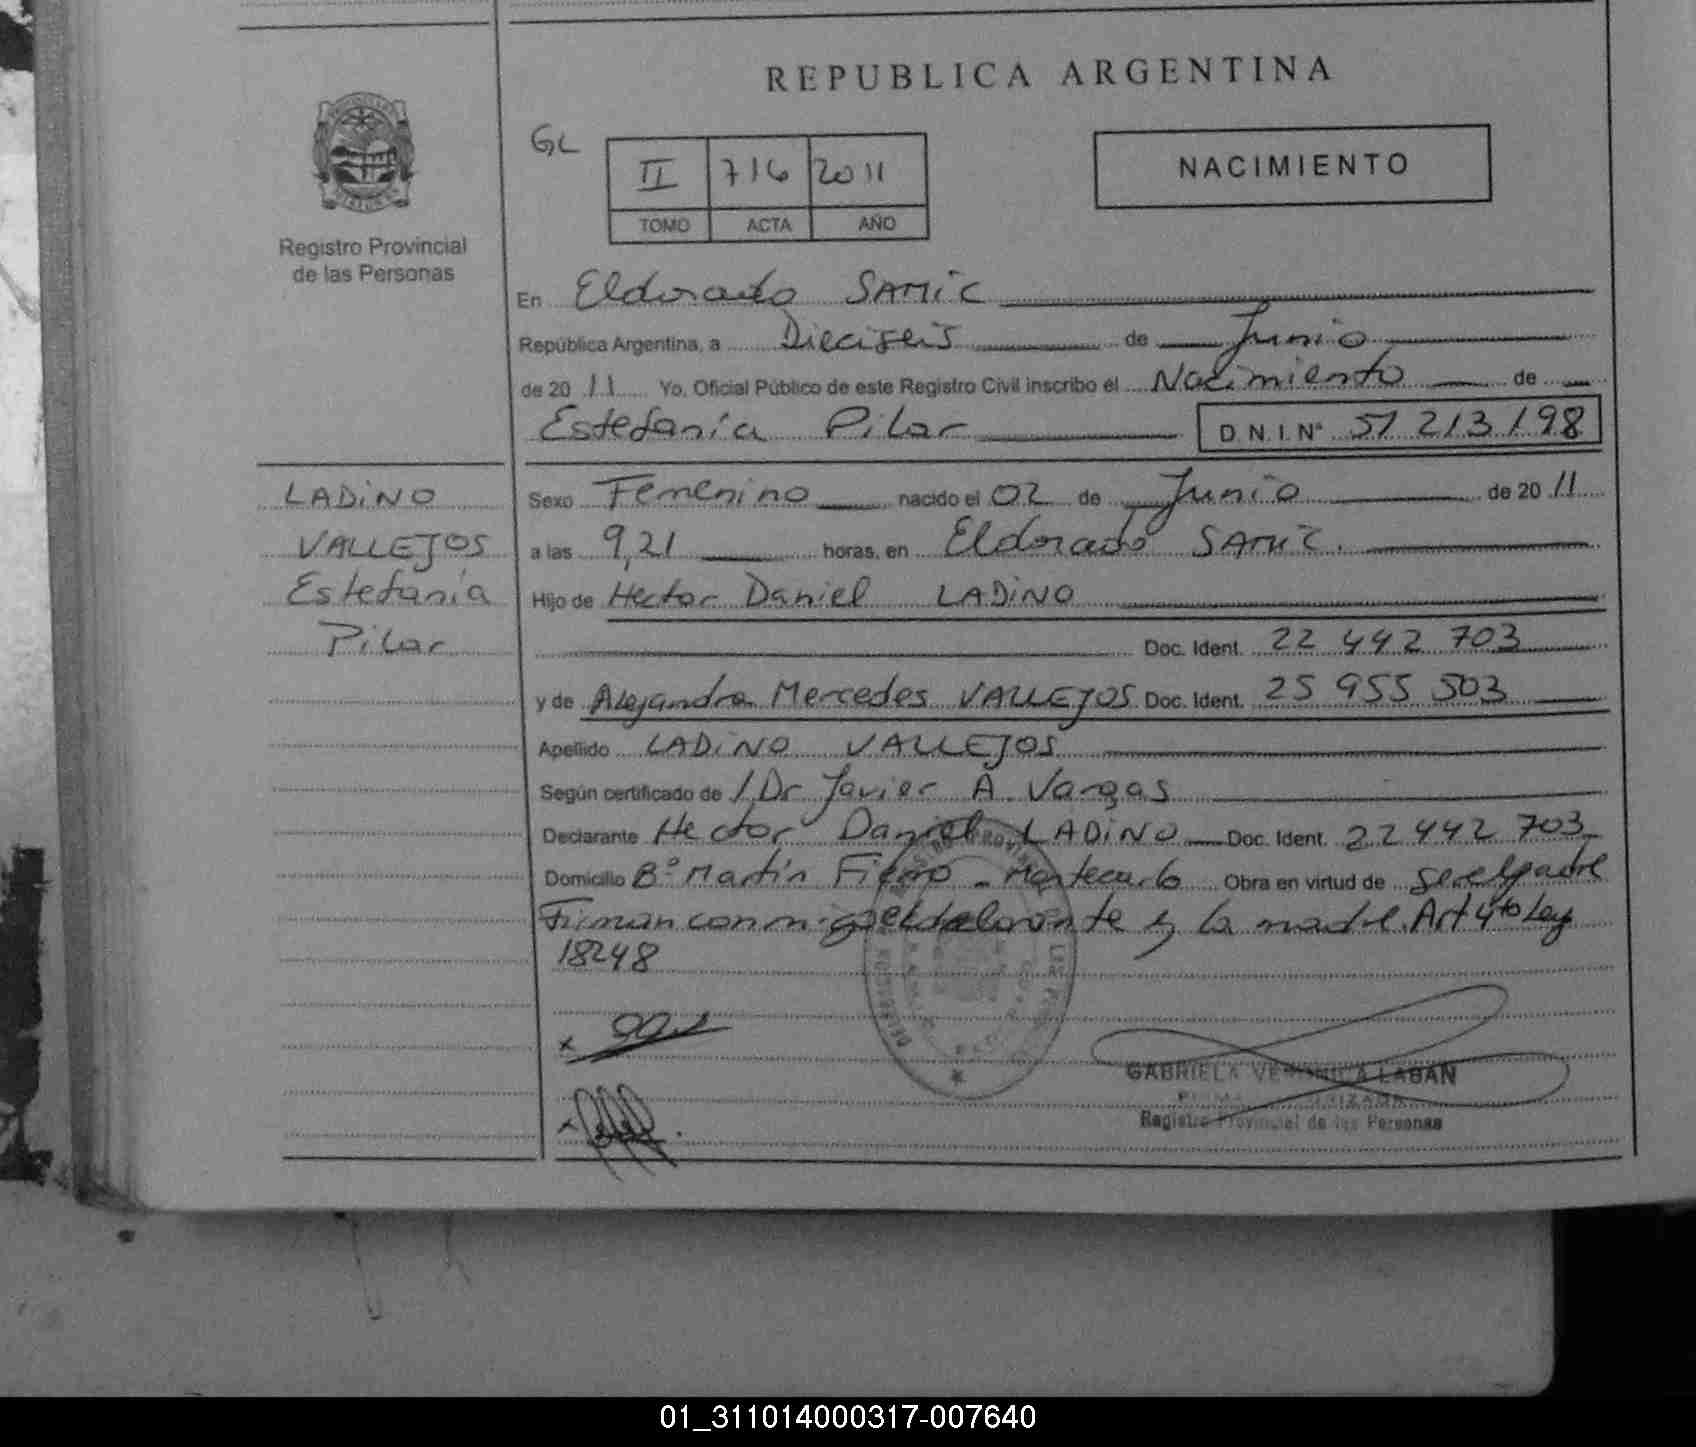 REPUBLICA ARGENTINA
GL
II 716 2011
TOMO ACTA AÑO
NACIMIENTO
Registro Provincial
de las Personas
En Eldorado SAMIC
República Argentina, a Dieciseis de Junio
de 20 11 Yo, Oficial Público de este Registro Civil inscribo el Nacimiento de
Estefanía Pilar D.N.I.Nº 51 213 198
LADINO
VALLEJOS
Estefanía
Pilar
Sexo Femenino nacido el 02 de Junio de 20 11
a las 9,21 horas, en Eldorado SAMIC.
Hijo de Hector Daniel LADINO
Doc. Ident. 22 442 703
y de Alejandra Mercedes VALLEJOS Doc. Ident. 25 955 503
Apellido LADINO VALLEJOS
Según certificado de Dr Javier A. Vargas
Declarante Hector Daniel LADINO Doc. Ident. 22 442 703
Domicilio Bº Martín Fierro - Montecarlo Obra en virtud de ser el padre
Firman conmigo el declarante y la madre. Art 4to Ley
18248
GABRIELA VERONICA LABAN
Registro Provincial de las Personas
01_311014000317-007640